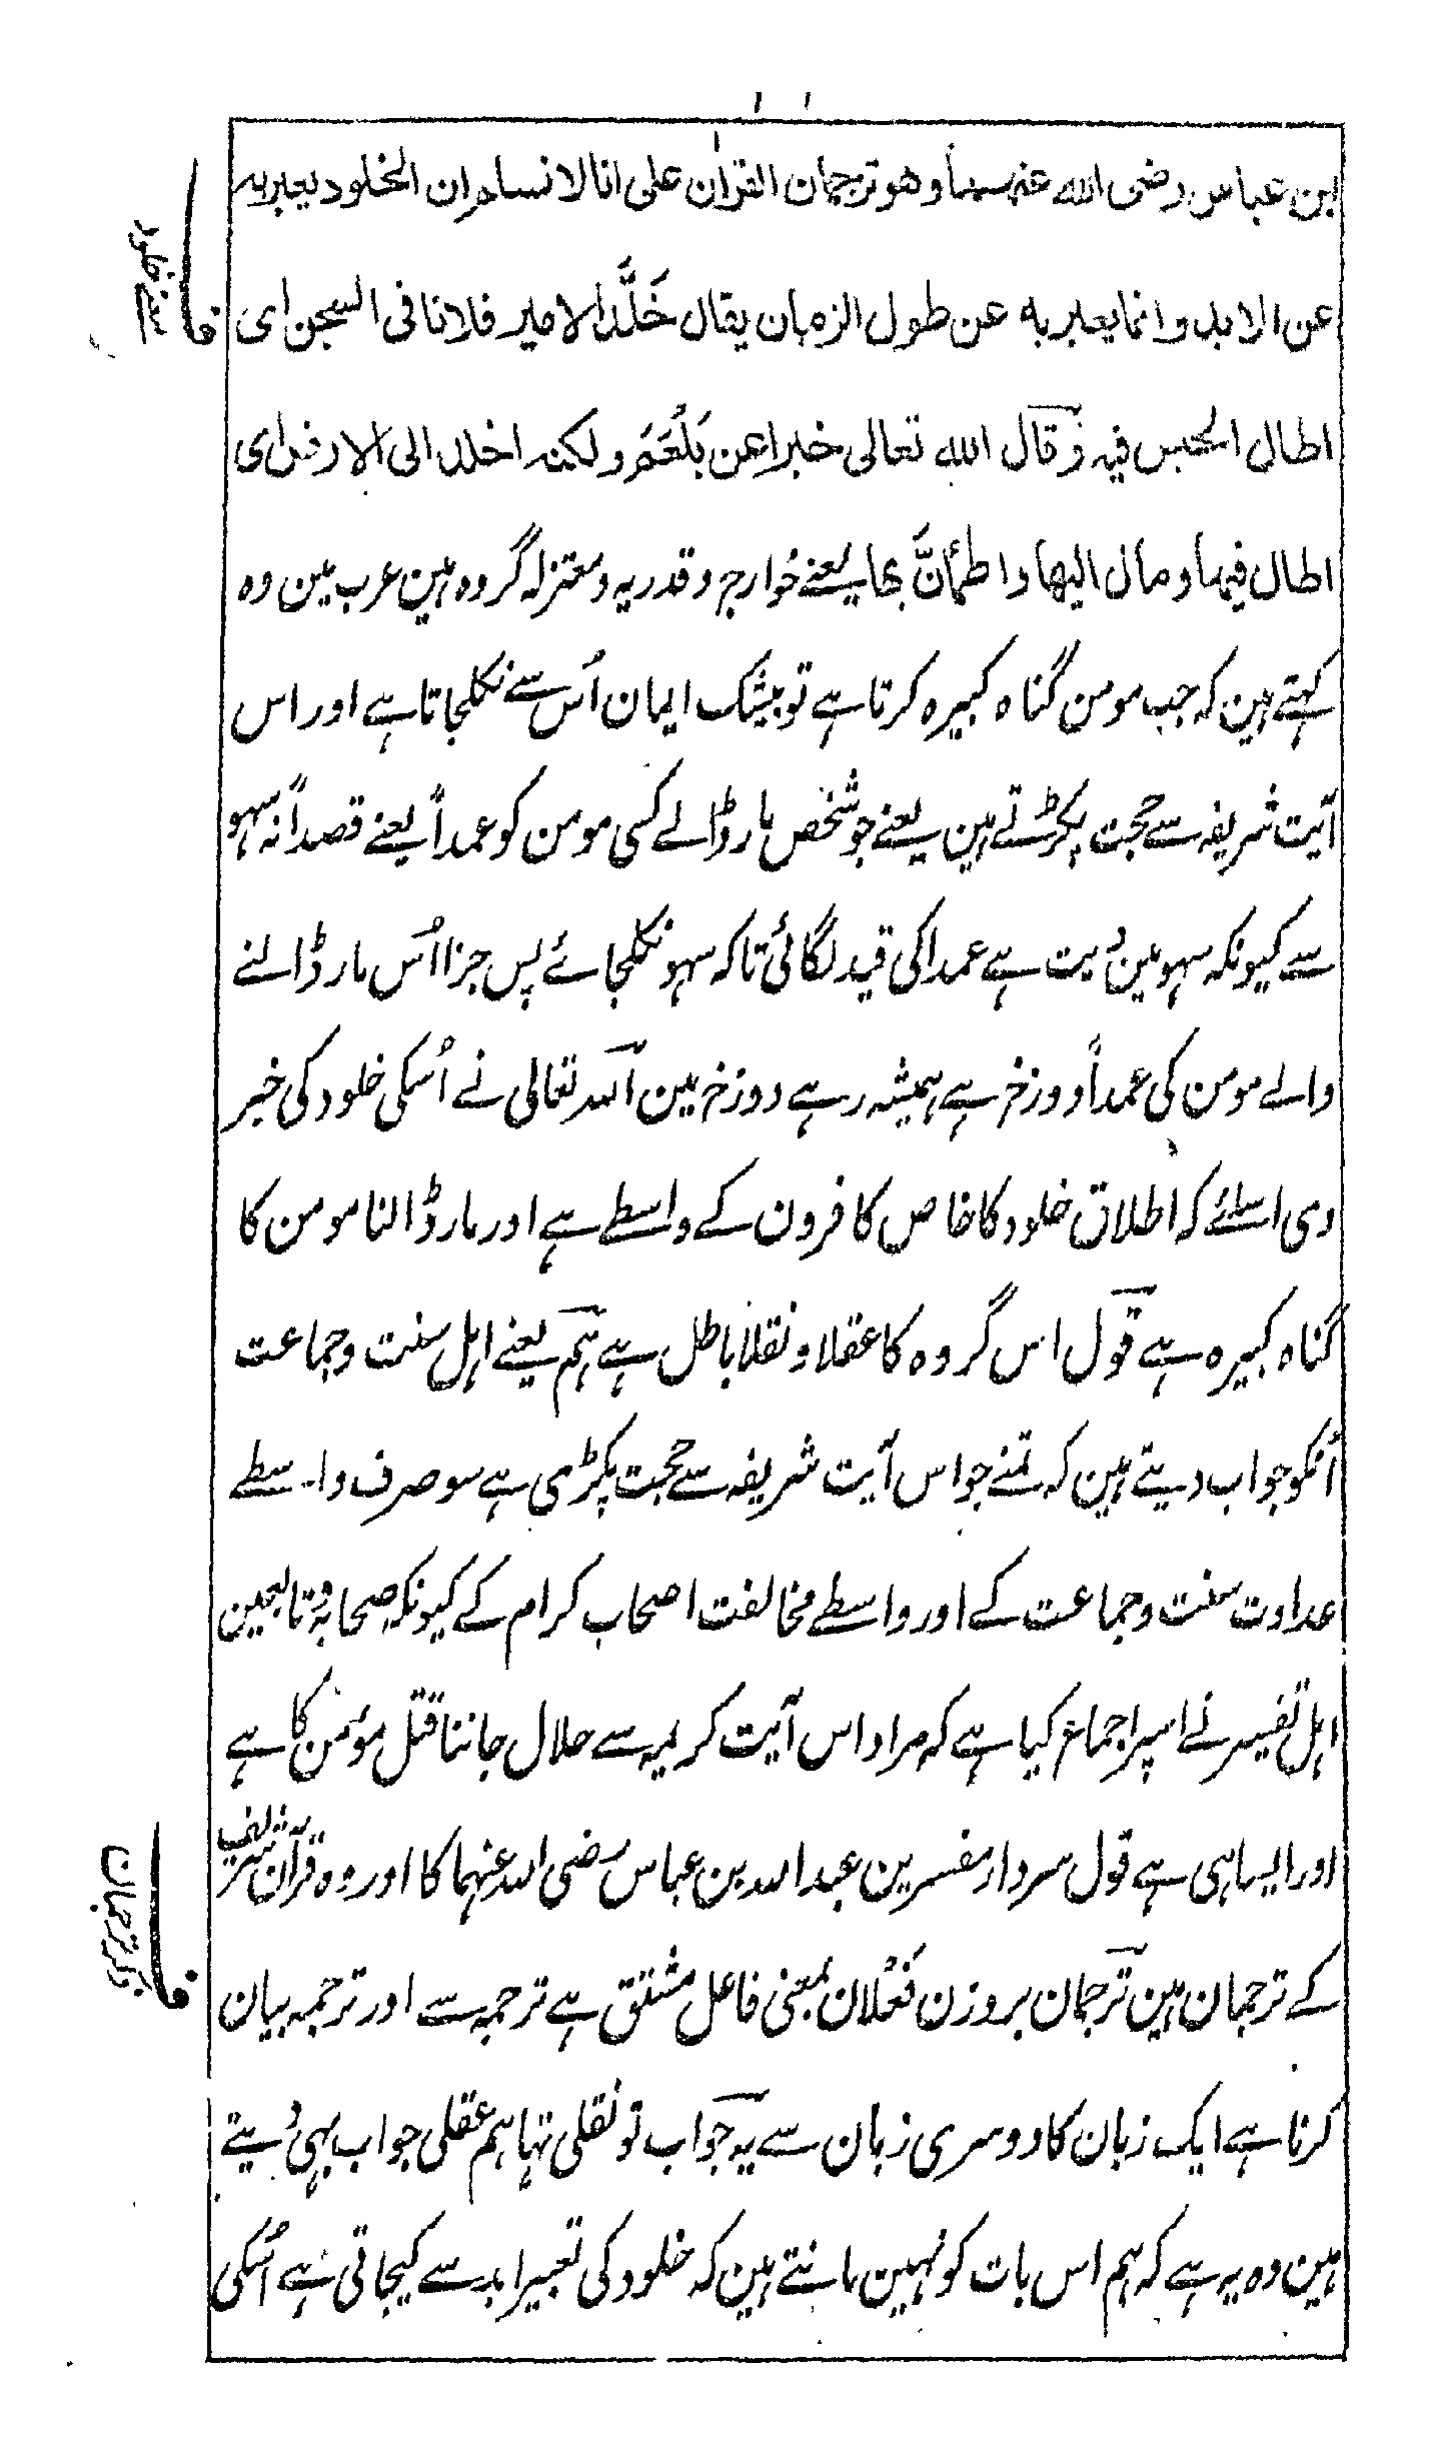 بن عباس رضی الله عنهما وهو ترجمان القرآن علی انا لا نسلم ان الخلود یعبر به
عن الابد وانما یعبر به عن طول الزمان یقال خَلَّدَ الامیر فلانا فی السجن ای
اطال الحبس فیه وَقال الله تعالی خبرا عن بَلْعَمَ ولکنه اخلد الی الارض ای
اطال فیها ومال الیها واطمأنَّ بها یعنے خوارج وقدریہ ومعتزلہ گروہ ہین عرب مین وہ
کہتے ہین کہ جب مومن گناہ کبیرہ کرتا ہے تو بیشک ایمان اُس سے نکلجاتا ہے اور اس
آیت شریفہ سے حجت پکڑتے ہین یعنے جو شخص مار ڈالے کسی مومن کو عمداً یعنے قصداً نہ سہو
سے کیونکہ سہو مین دیت ہے عمدا کی قید لگائی تاکہ سہو نکلجائے پس جزا اُس مار ڈالنے
والے مومن کی عمداً دوزخ ہے ہمیشہ رہے دوزخ مین اللہ تعالی نے اُسکی خلود کی خبر
دی اسلئے کہ اطلاق خلود کا خاص کافرون کے واسطے ہے اور مار ڈالنا مومن کا
گناہ کبیرہ ہے قول اس گروہ کا عقلا و نقلا باطل ہے ہم یعنے اہل سنت و جماعت
اُنکو جواب دیتے ہین کہ تمنے جو اس آیت شریفہ سے حجت پکڑی ہے سو صرف واسطے
عداوت سنت و جماعت کے اور واسطے مخالفت اصحاب کرام کے کیونکہ صحابہ و تابعین
اہل تفسیر نے اسپر اجماع کیا ہے کہ مراد اس آیت کریمہ سے حلال جاننا قتل مؤمن کا ہے
اور ایسا ہی ہے قول سردار مفسرین عبداللہ بن عباس رضی اللہ عنہما کا اور وہ قرآن شریف
کے ترجمان ہین تَرجمان بروزن فَعْلان بمعنی فاعل مشتق ہے ترجمہ سے اور ترجمہ بیان
کرنا ہے ایک زبان کا دوسری زبان سے یہ جواب تو نقلی تہا ہم عقلی جواب بہی دیتے
ہین وہ یہ ہے کہ ہم اس بات کو نہین مانتے ہین کہ خلود کی تعبیر ابد سے کیجاتی ہے اُسکی
ف
معنے خلود
ف
ذکر ترجمان